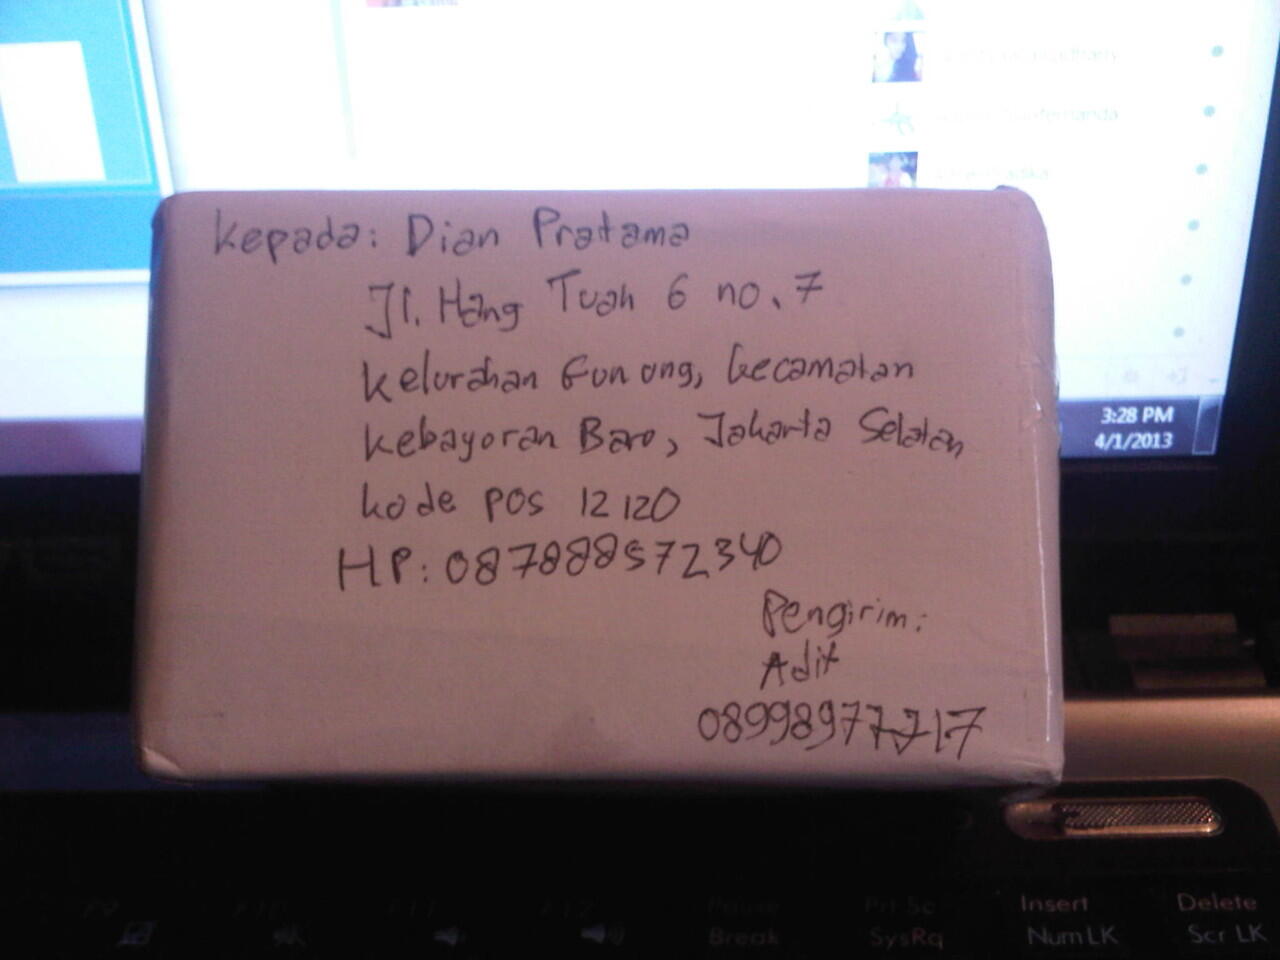 Kepada: Dian Pratama
Jl. Hang Tuah 6 no. 7
Kelurahan Gunung, Kecamatan
Kebayoran Baro, Jakarta Selatan
kode pos 12120
HP: 087888572340
Pengirim:
Adit
08998977717
3:28 PM
4/1/2013
Pause
Break
Prt Sc
SysRq
Insert
NumLK
Delete
Scr LK